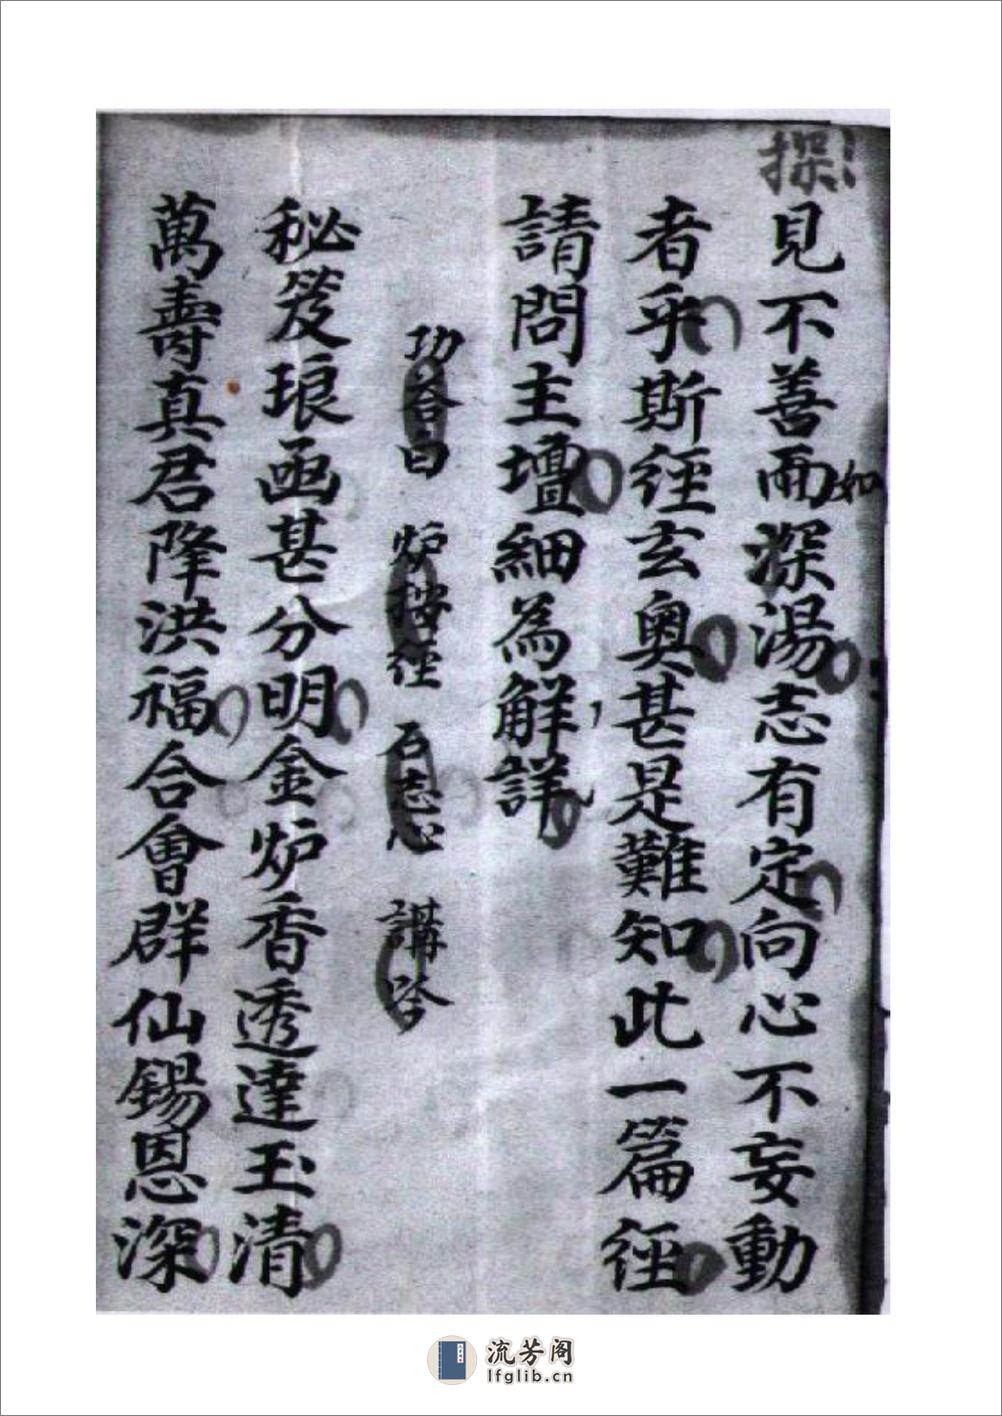 探
見不善而如深湯志有定向心不妄動
者乎斯徑玄奧甚是難知此一篇徑
請問主壇細為解詳
功答白 炉按徑 石志心 講答
秘笈琅函甚分明金炉香透達玉清
萬壽真君降洪福合會群仙錫恩深
流芳阁
lfglib.cn